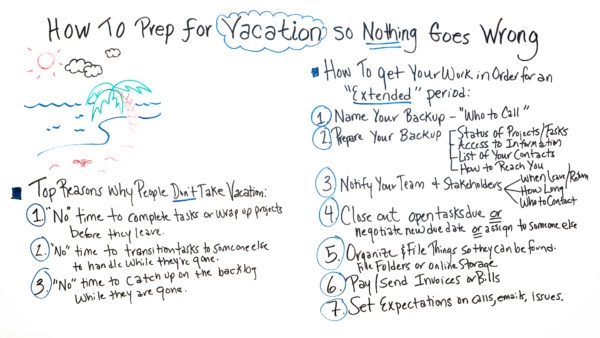 How To Prep for Vacation so Nothing Goes Wrong
Top Reasons Why People Don't Take Vacation:
1. "No" time to complete tasks or wrap up projects
before they leave.
2. "No" time to transition tasks to someone else
to handle while they're gone.
3. "No" time to catch up on the backlog
while they are gone.
How To get Your Work in Order for an
"Extended" period:
1 Name Your Backup - "Who to Call"
2. Prepare Your Backup
Status of Projects/Tasks
Access to Information
List of Your Contacts
How to Reach You
3 Notify Your Team + Stakeholders
When Leave/Return
How Long!
Who to Contact
4. Close out open tasks due or
negotiate new due date or assign to someone else
5. Organize & File Things so they can be found.
File Folders or online Storage
6. Pay/Send Invoices or Bills
7. Set Expectations on calls, emails, issues.